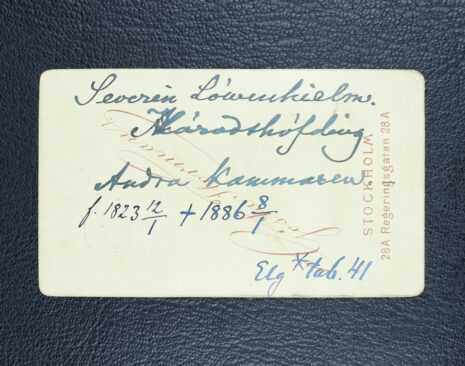 Severin Löwenhielm.
Häradshöfding
Andra Kammaren.
f. 1823 12/1 + 1886 8/1
Elg x tab. 41
STOCKHOLM
28A Regeringsgatan 28A